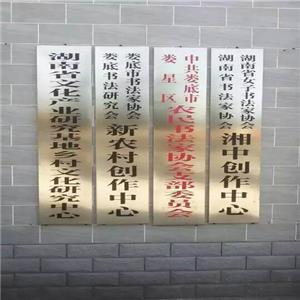 湖南省文化产业研究基地乡村文化研究中心
娄底市书法家协会
娄底书法研究会
新农村创作中心
中共娄底市
娄星区
农民书法家协会支部委员会
湖南省女子书法家协会
湖南省书法家协会
湘中创作中心